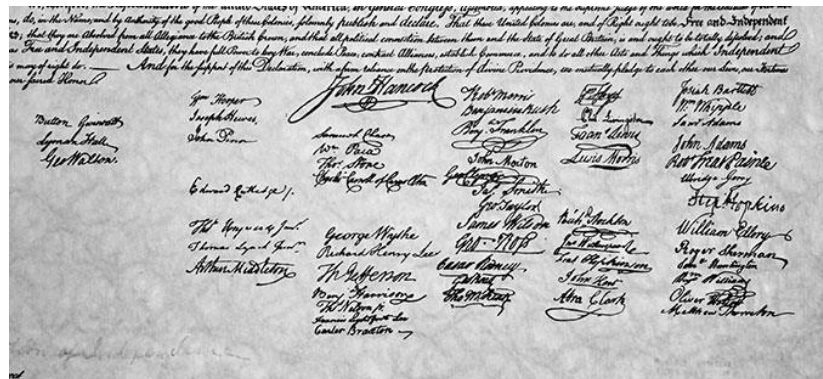 of the united States of America, in General Congress, Assembled, appealing to the Supreme Judge of the world
do, in the Name, and by Authority of the good People of these Colonies, solemnly publish and declare, That these United Colonies are, and of Right ought to be Free and Independent
that they are Absolved from all Allegiance to the British Crown, and that all political connection between them and the State of Great Britain, is and ought to be totally dissolved; and
as Free and Independent States, they have full Power to levy War, conclude Peace, contract Alliances, establish Commerce, and to do all other Acts and Things which Independent
may of right do. — And for the support of this Declaration, with a firm reliance on the protection of divine Providence, we mutually pledge to each other our Lives, our Fortunes
our sacred Honor
Button Gwinnett
Lyman Hall
Geo Walton.
Wm Hooper
Joseph Hewes,
John Penn
Edward Rutledge /.
Thos Heyward Junr.
Thomas Lynch Junr.
Arthur Middleton
John Hancock
Samuel Chase
Wm Paca
Thos Stone
Charles Carroll of Carrollton
George Wythe
Richard Henry Lee
Th Jefferson
Benj Harrison
Thos Nelson jr.
Francis Lightfoot Lee
Carter Braxton
Robt Morris
Benjamin Rush
Benj. Franklin
John Morton
Geo Clymer
Jas. Smith
Geo. Taylor
James Wilson
Geo. Ross
Caesar Rodney
Geo Read
Tho M:Kean
Phil. Livingston
Frans Lewis
Lewis Morris
Richd Stockton
Jno Witherspoon
Fras Hopkinson
John Hart
Abra Clark
Josiah Bartlett
Wm Whipple
Saml Adams
John Adams
Robt Treat Paine
Elbridge Gerry
Step Hopkins
William Ellery
Roger Sherman
Saml Huntington
Wm Williams
Oliver Wolcott
Matthew Thornton